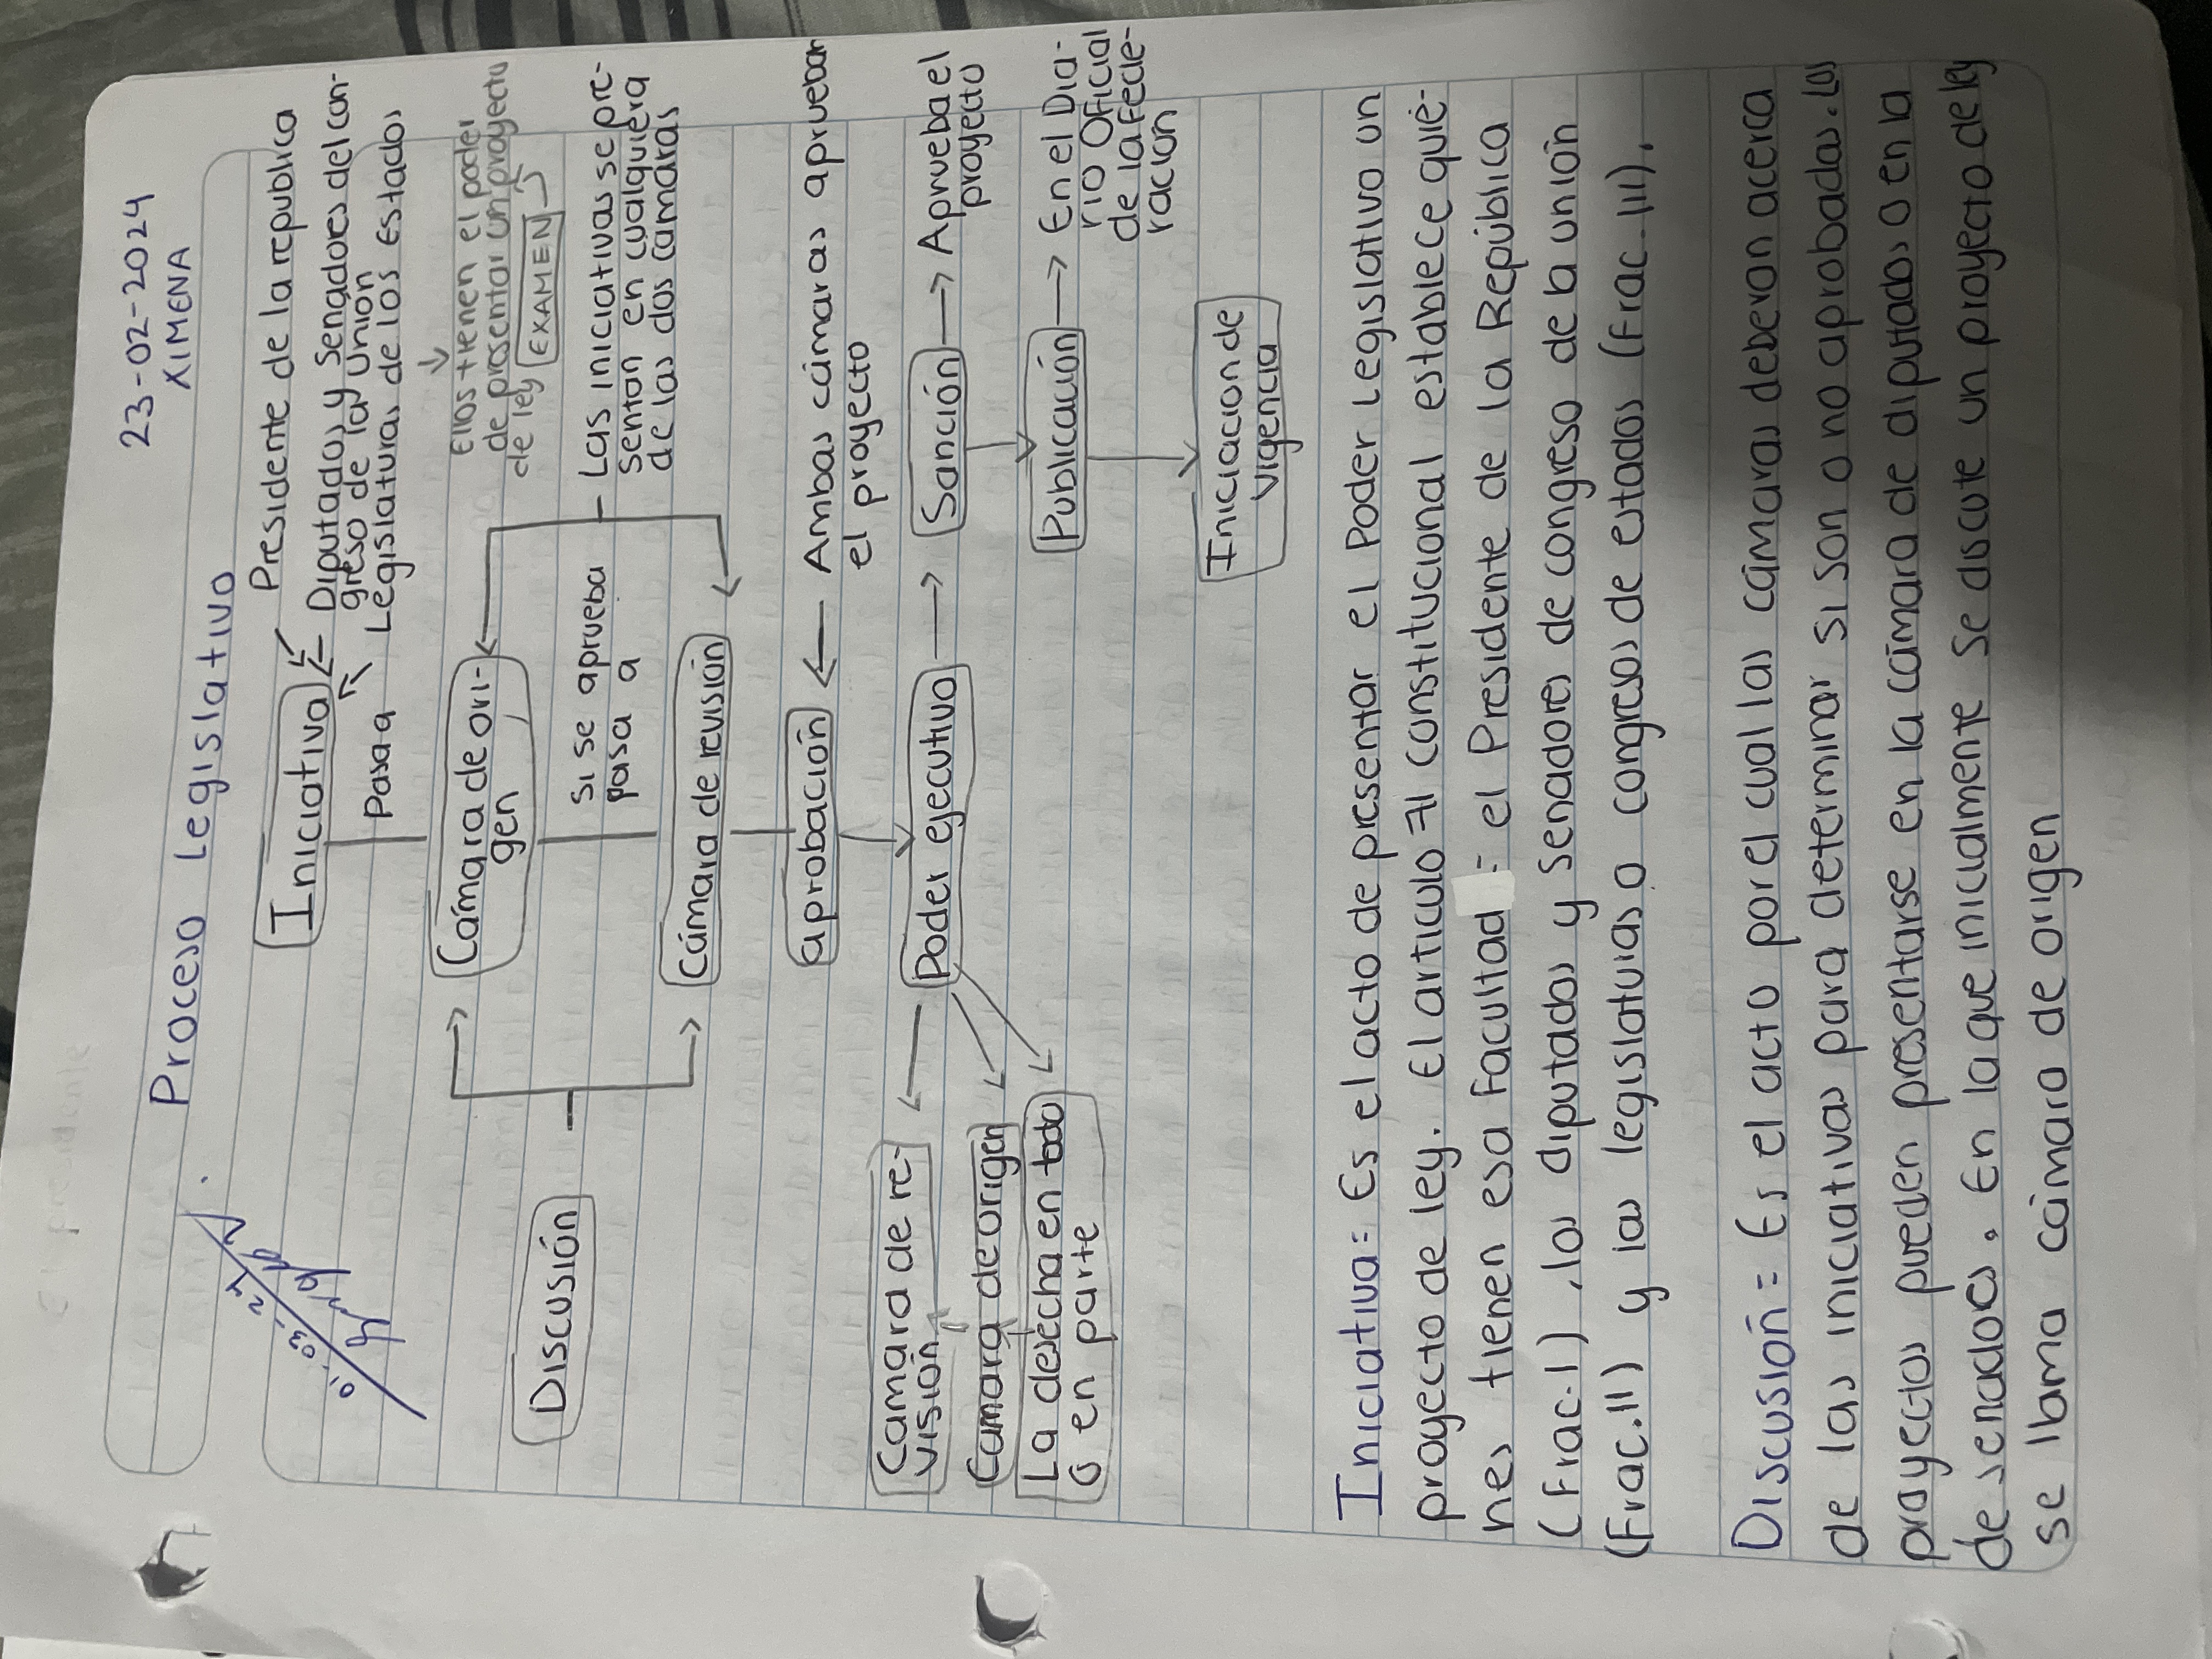 23-02-2024
XIMENA
Proceso Legislativo
Iniciativa
Presidente de la republica
Diputados y Senadores del con-
greso de la Unión
Legislaturas de los Estados
Pasa a
Ellos tienen el poder
de presentar un proyecto
de ley EXAMEN
Cámara de ori-
gen
Las iniciativas se pre-
sentan en cualquiera
de las dos camaras
si se aprueba
pasa a
Discusión
Cámara de revisión
aprobación
Ambas cámaras aprueban
el proyecto
Poder ejecutivo
Sanción
Aprueba el
proyecto
Camara de re-
visión
Camara de origen
La desecha en todo
o en parte
Publicación
En el Dia-
rio Oficial
de la Fede-
ración
Iniciacion de
vigencia
Iniciativa= Es el acto de presentar el Poder Legislativo un
proyecto de ley. El articulo 71 constitucional establece quié-
nes tienen esa Facultad : el Presidente de la República
(Frac.I), los diputados y senadores de congreso de la unión
(Frac.II) y las legislaturas o congresos de estados (Frac.III).
Discusión= Es el acto por el cual las cámaras deberan acerca
de las iniciativas para determinar si son o no aprobadas. Los
proyectos pueden presentarse en la cámara de diputados o en la
de senadores. En la que inicialmente se discute un proyecto de ley
se llama cámara de origen